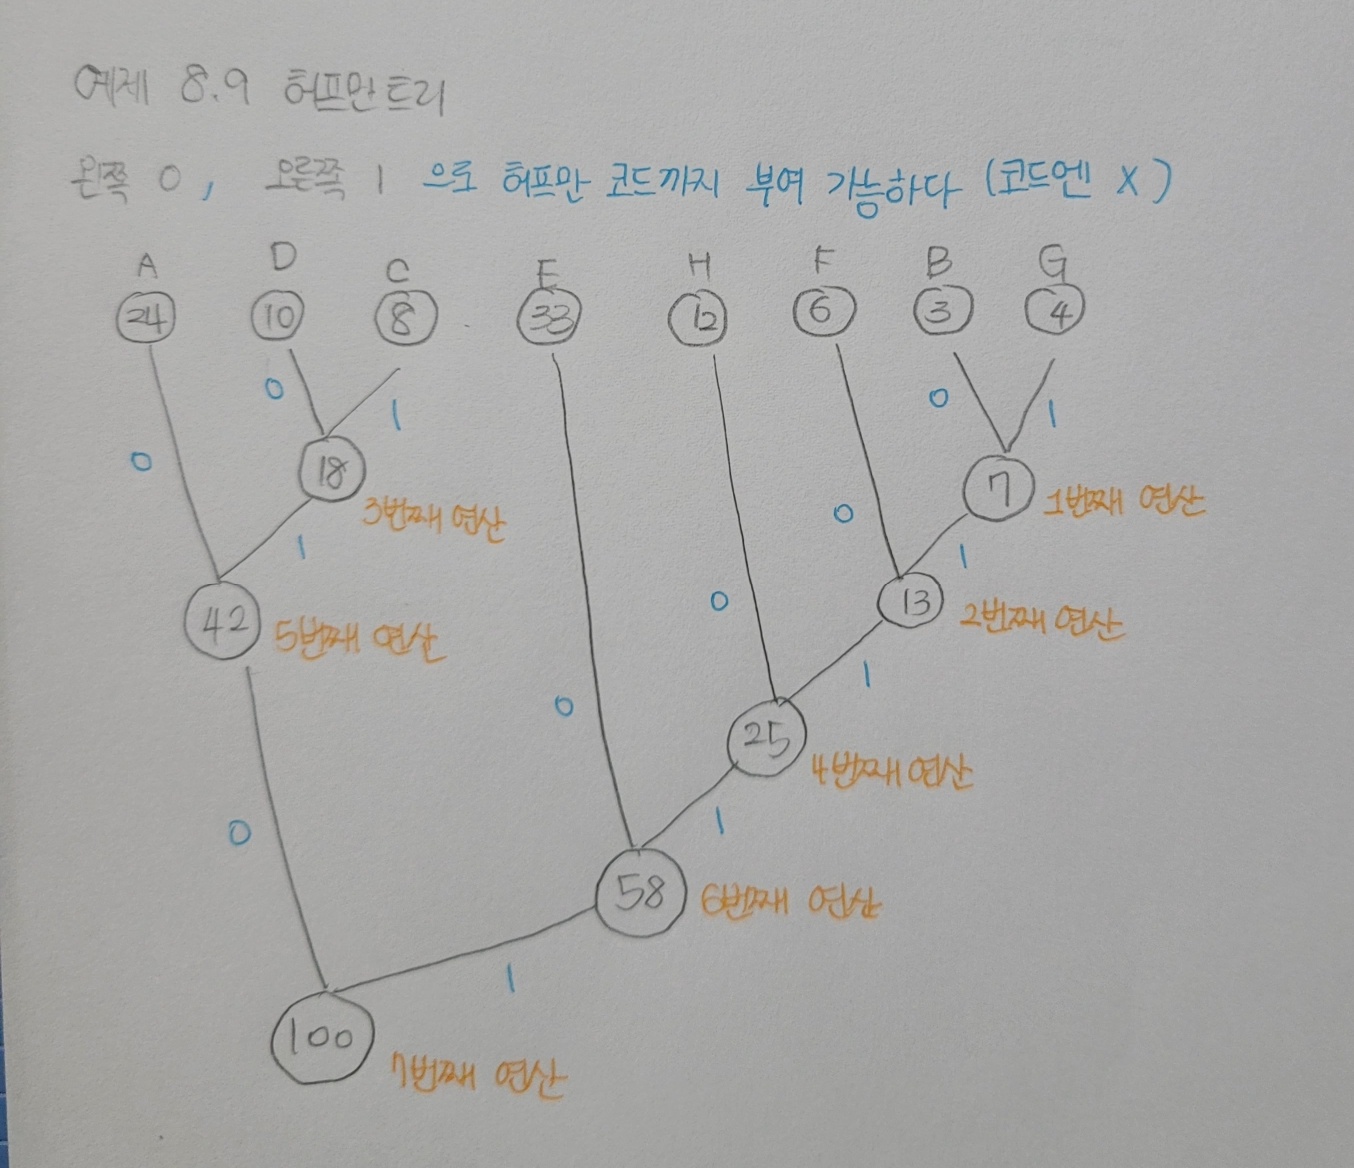 예제 8.9 허프만트리
왼쪽 0, 오른쪽 1 으로 허프만 코드까지 부여 가능하다 (코드엔 X)
A D C E H F B G
24 10 8 33 12 6 3 4
0 1 0 1
0 18 0 7 1번째 연산
3번째 연산
1 1
42 5번째 연산 0 13 2번째 연산
0 1
25 4번째 연산
0 1
58 6번째 연산
1
100 7번째 연산